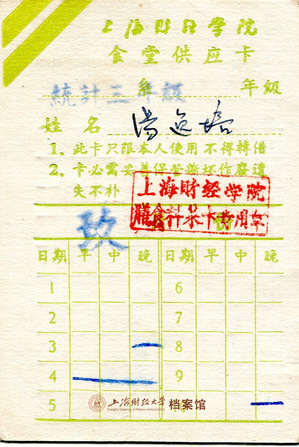 上海财经学院
食堂供应卡
統計三 系 年級
姓名 湯
1、此卡只限本人使用不得轉借
2、卡必需妥善保管撕坏作廢遺
失不补
上海财经学院
膳食計菜卡专用章
玖
日期 早 中 晚 日期 早 中 晚
1 6
2 7
3 8
4 9
5
上海财经大学 档案馆